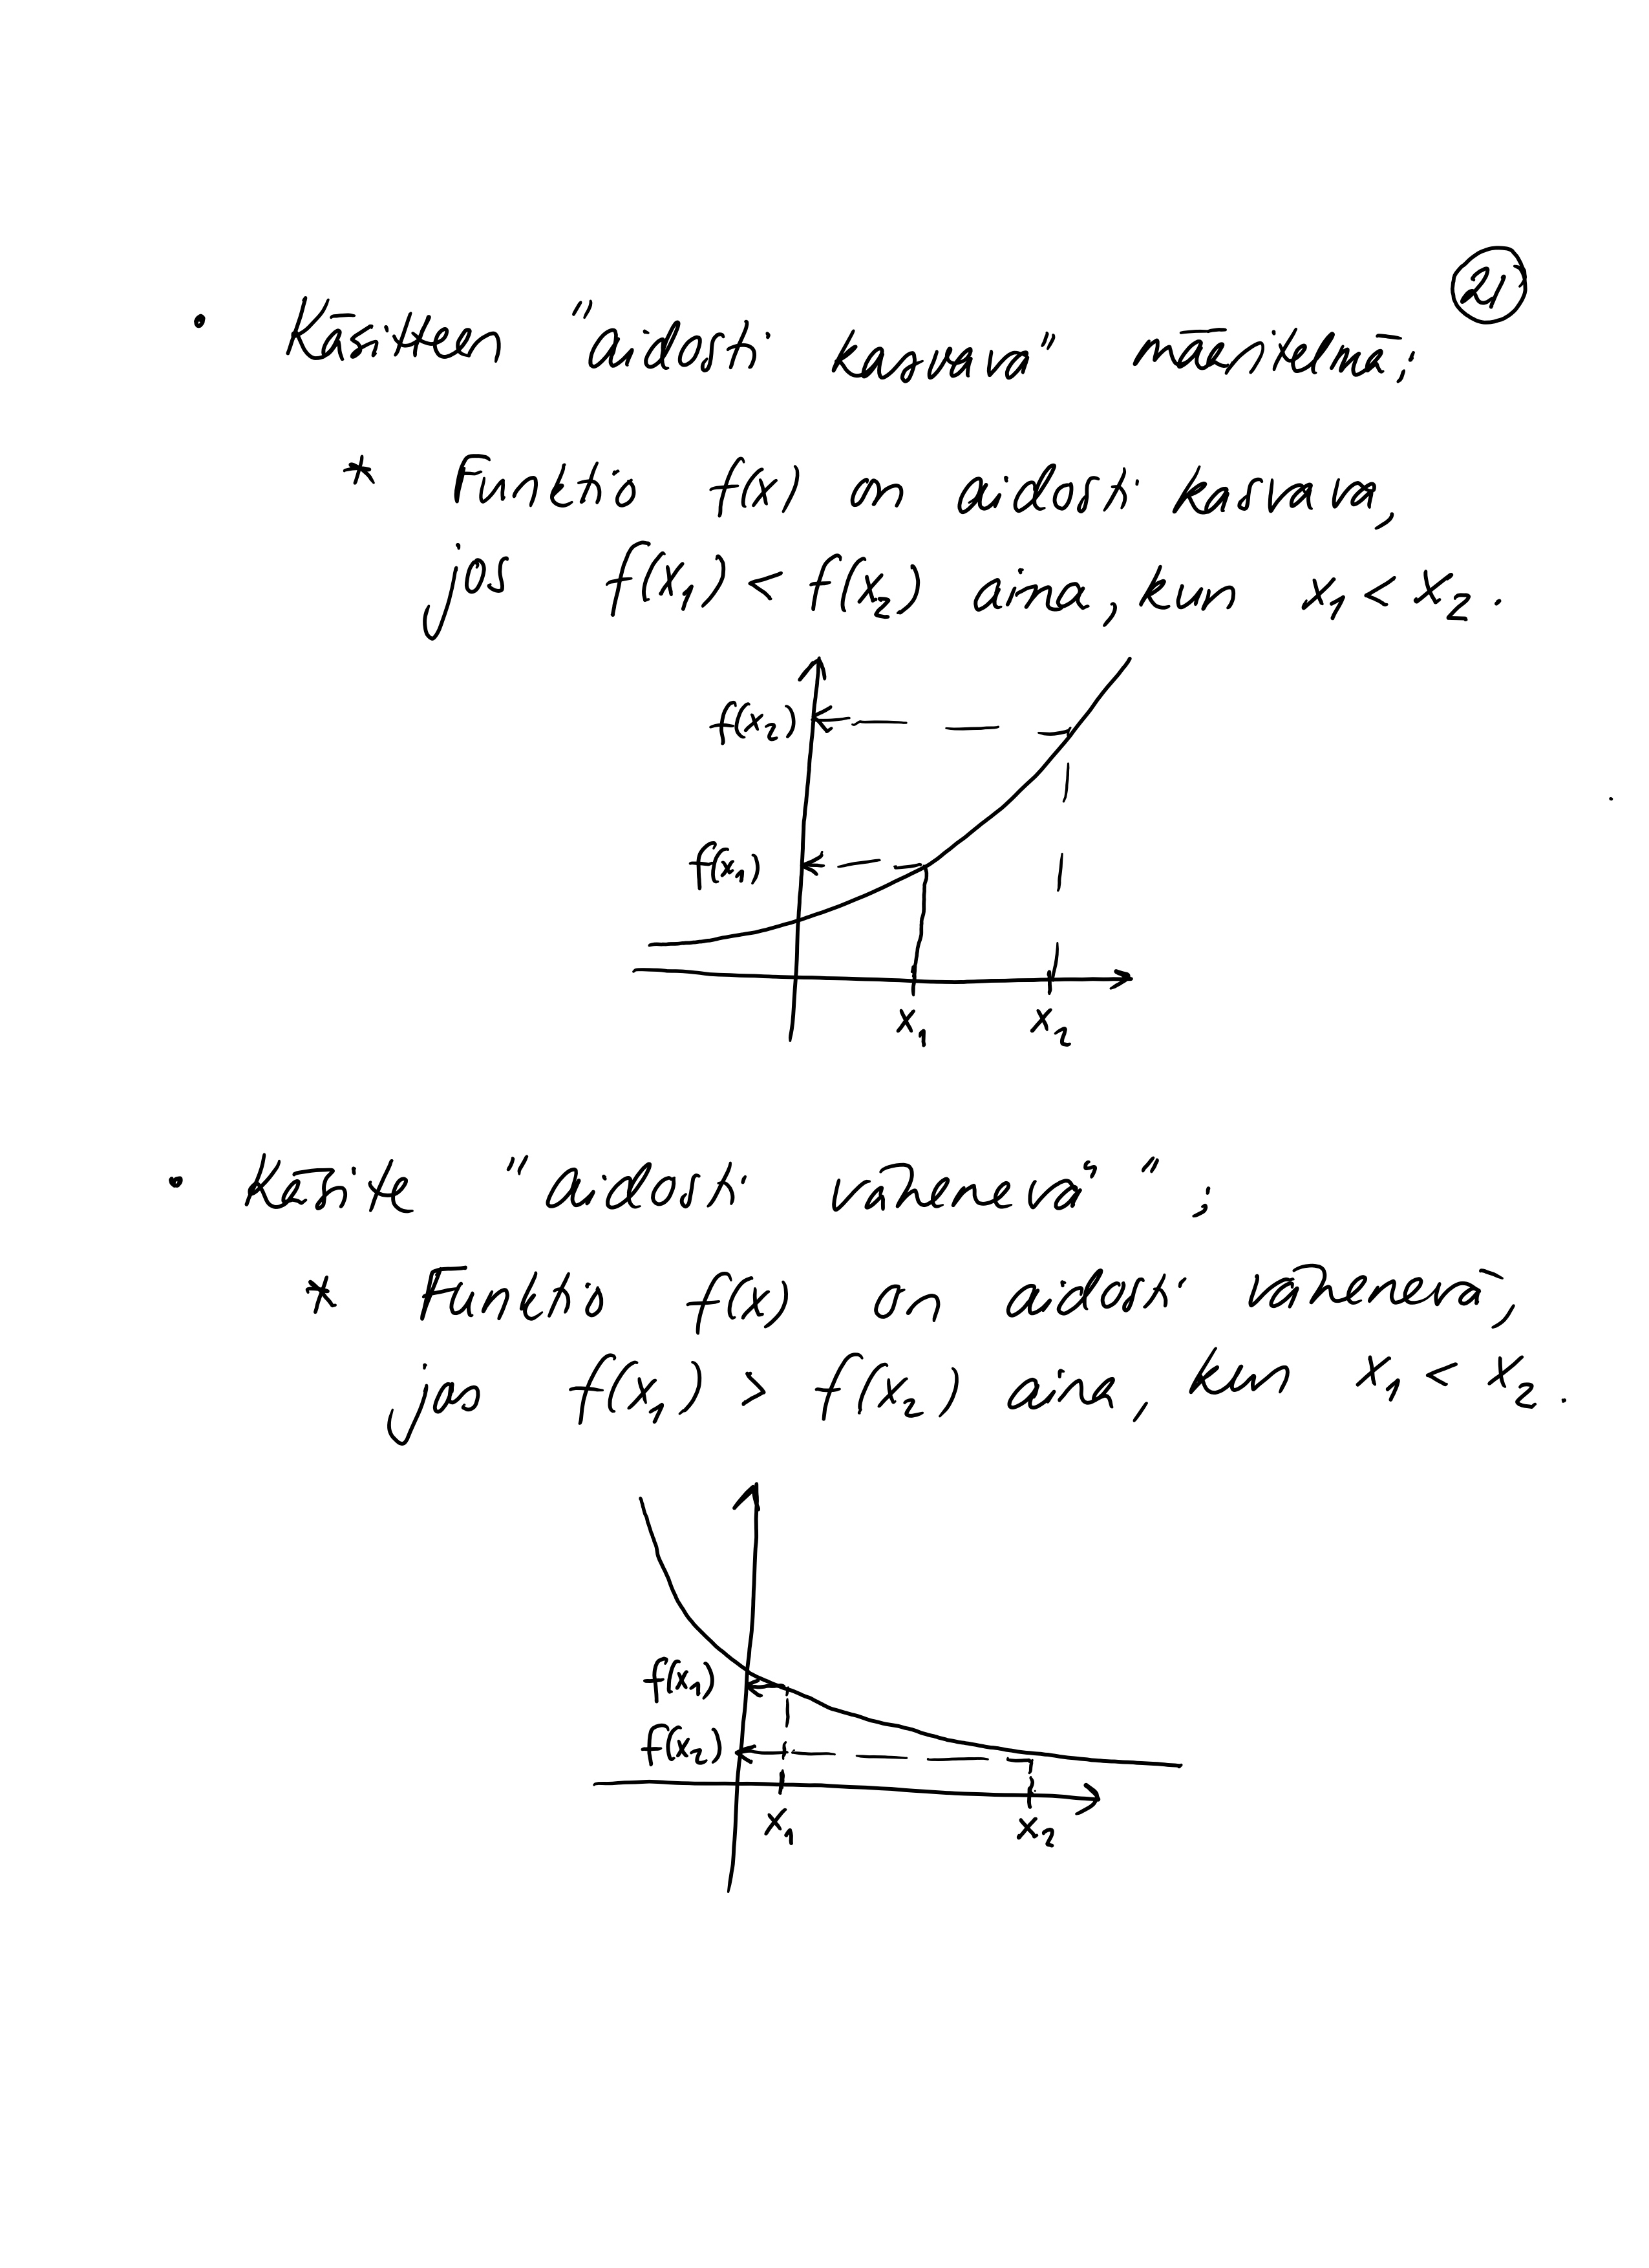 21
• Käsitteen "aidosti kasvava" määritelmä:
* Funktio f(x) on aidosti kasvava,
jos f(x₁) < f(x₂) aina, kun x₁ < x₂.
f(x₂)
f(x₁)
x₁ x₂
• Käsite "aidosti vähenevä":
* Funktio f(x) on aidosti vähenevä,
jos f(x₁) > f(x₂) aina, kun x₁ < x₂.
f(x₁)
f(x₂)
x₁ x₂